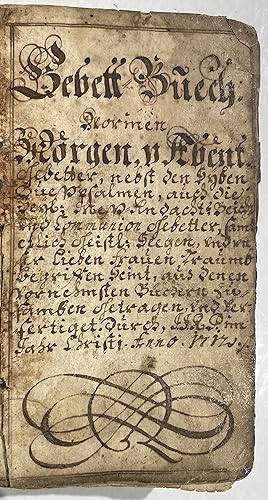 Gebett Buech.
Worinen
Morgen, v Abent.
Gebetter, nebst den Syben
Bue Psalmen, auch die
Andacht Beicht
und Communion Gebetter,
etlich Geistl: Seegen, und
er lieben Frauen Traumb
begriffen seint, aus denen
vornehmsten Büchern Zu-
samben Getragen, und ver
fertiget. Durch, im
Jahr Christi. Anno.